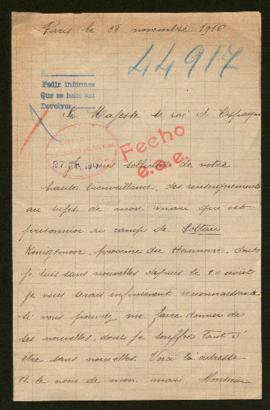 Paris le 28 novembre 1916
44917
A
Pedir informes
Que se hace así
Devolver
Sa Majesté le roi d'Espagne
Fecho
27
e.a.e.
Je viens solliciter de votre
haute bienveillance, des renseignements
au sujet de mon mari qui est
prisonnier au camp de Soltau
Königsmoor, province du Hannovre, dont
je suis sans nouvelles depuis le 20
je vous serais infiniment reconnaissante
si vous pouvez me faire donner de
ses nouvelles, dont je souffre tant d'
être sans nouvelles. Voici l'adresse
et le nom de mon mari Monsieur